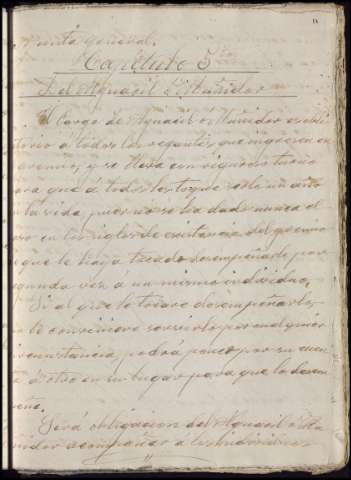 Junta general.
Capitulo 5º
Del Alguacil ó Muñidor
El Cargo de Alguacil ó Muñidor es obli
torio á todos los regantes que ingresen en
gremio, y se lleva con riguroso turno
ara que á todos les toque solo un año
la vida, pues no se ha dado nunca el
so en los siglos de existencia del gremio
que le haya tocado desempeñarlo por
egunda vez á un mismo individuo.
Si al que le tocare desempeñarlo,
no le conviniere servirlo por cualquier
circunstancia, podrá poner por su cuen
ta á otro en su lugar para que lo desem
peñe.
Será obligacion del Alguacil ó Mu
ñidor acompañar á los individuos